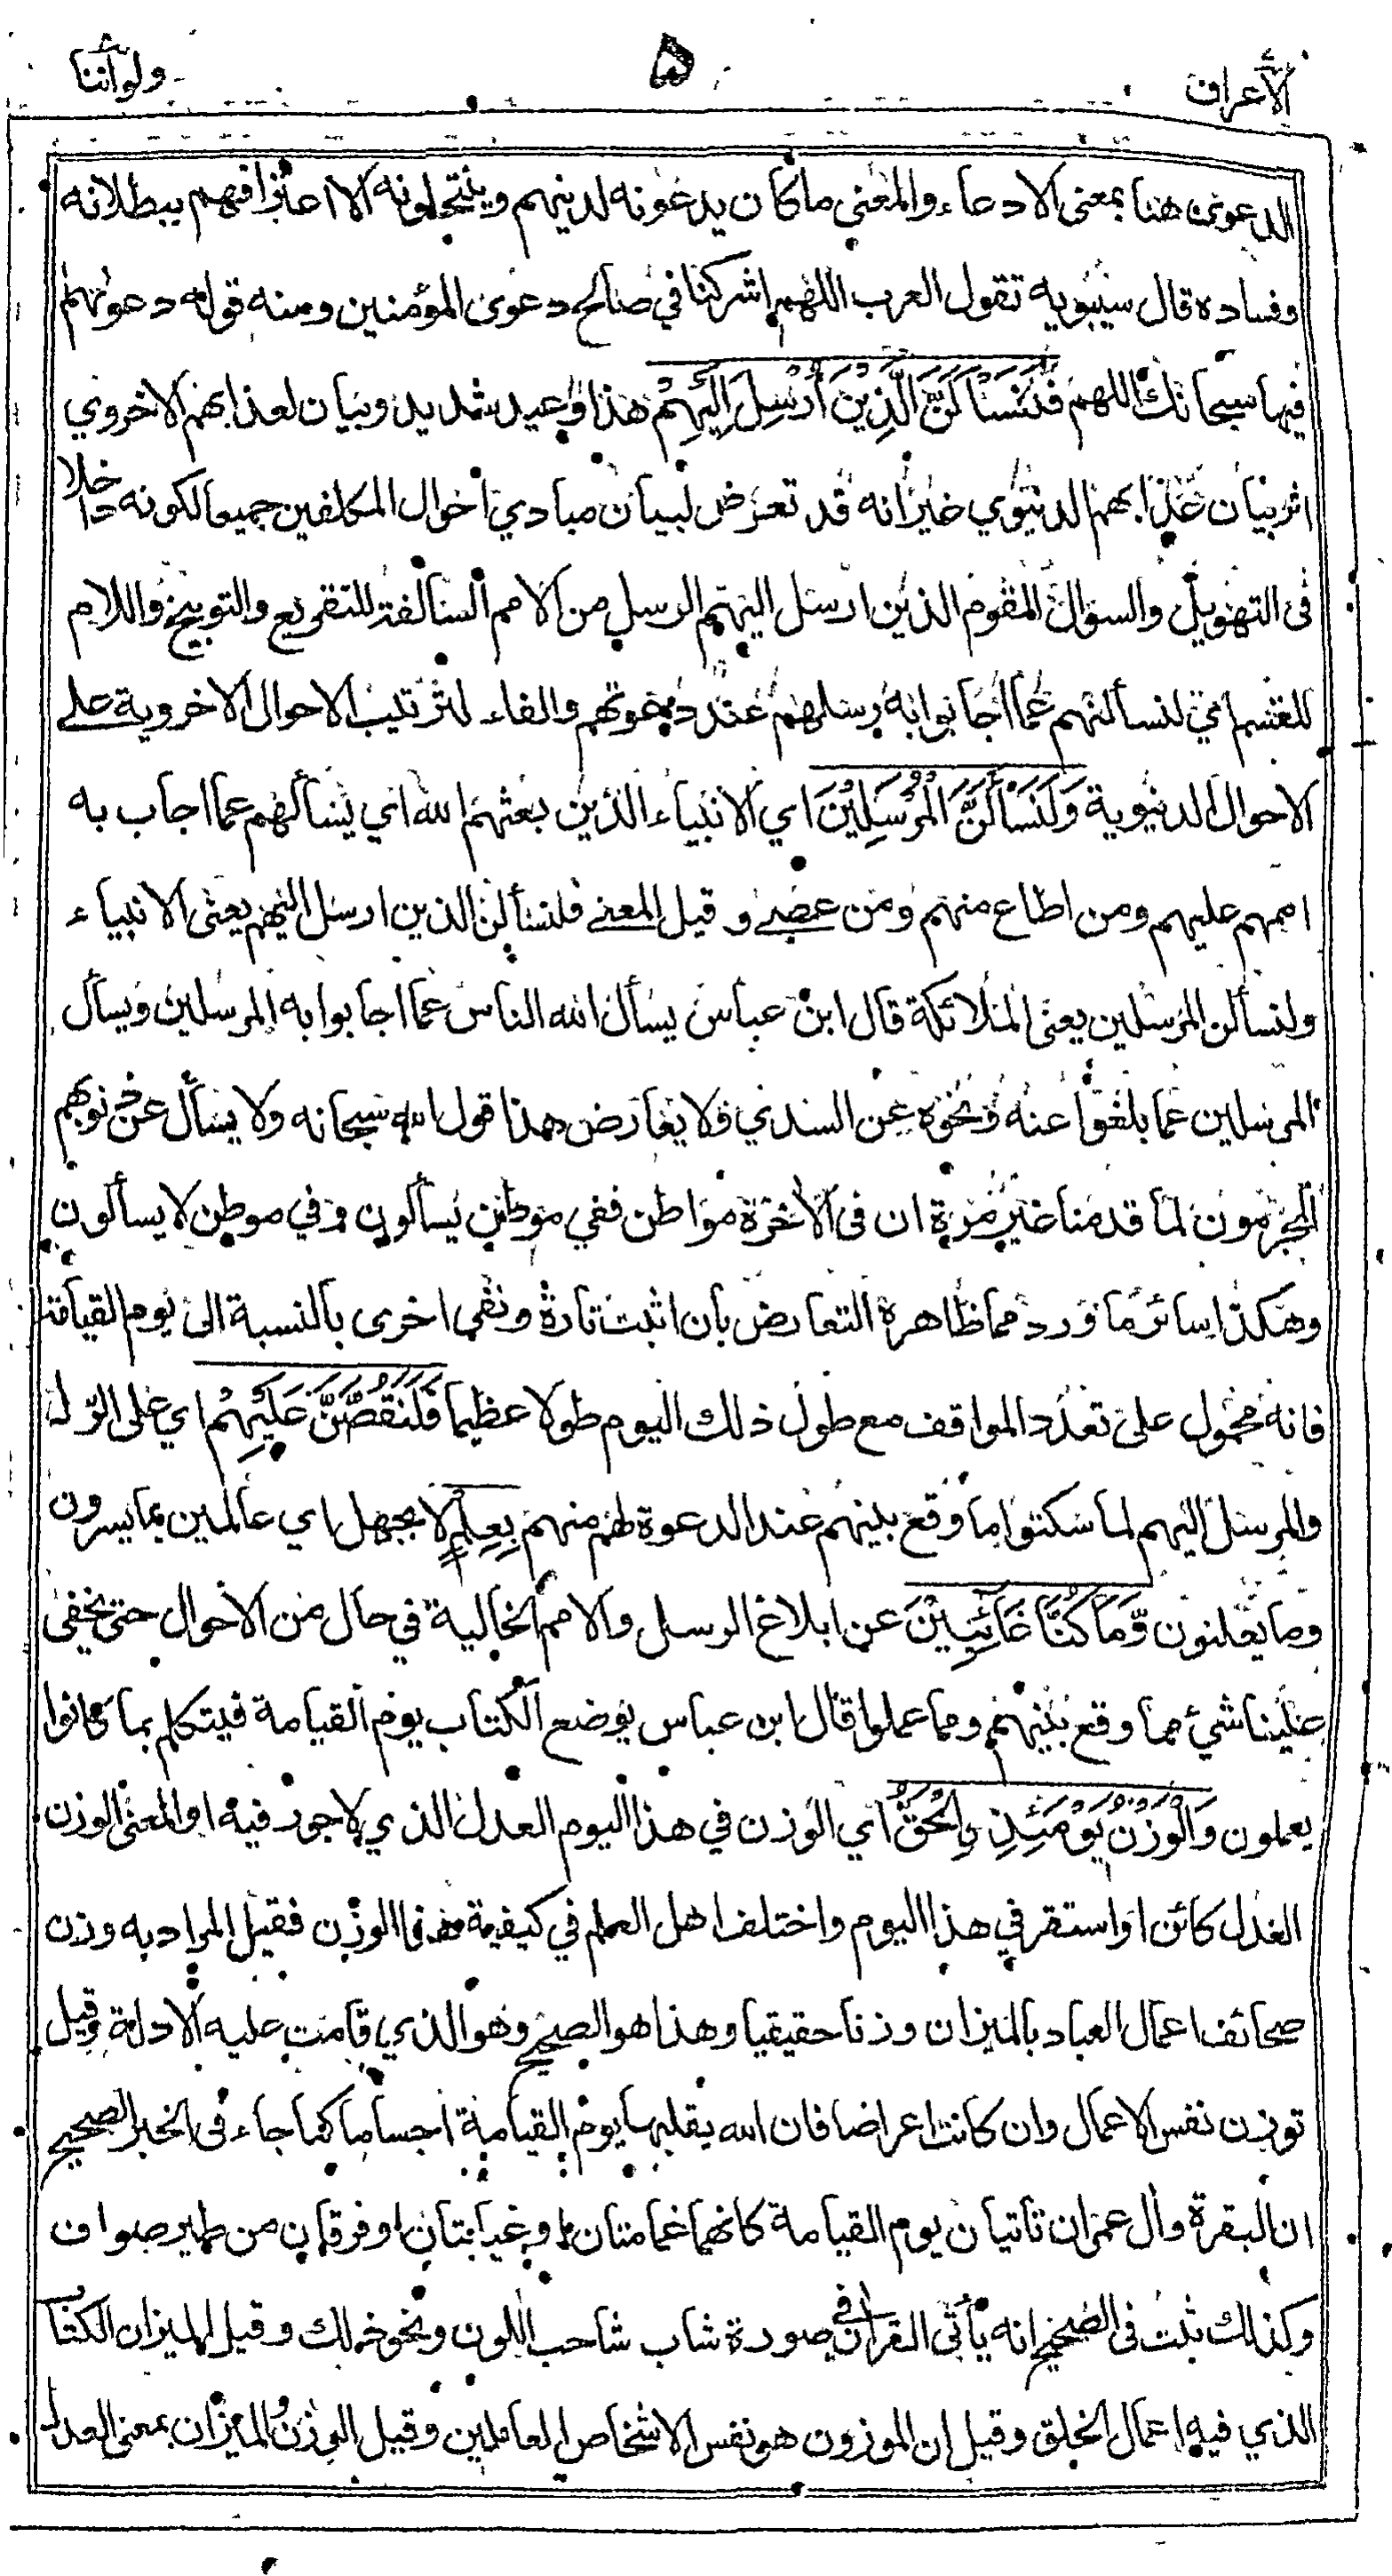 الأعراف ۵ ولو أننا
الدعوى هنا بمعنى الادعاء والمعنى ما كان يدعونه لدينهم وينتحلونه الا اعترافهم ببطلانه
وفساده قال سيبويه تقول العرب اللهم اشركنا في صالح دعوى المؤمنين ومنه قوله دعوٰهم
فيها سبحانك اللهم فَلَنَسْئَلَنَّ الَّذِينَ أُرْسِلَ إِلَيْهِمْ هذا وعيد شديد وبيان لعذابهم الاخروي
اثر بيان عذابهم الدنيوي خيرانه قد تعرض لبيان مبادي احوال المكلفين جميعا لكونه داخلا
فى التهويل والسؤال المقوم الذين ارسل اليهم الرسل من الامم السالفة للتقريع والتوبيخ واللام
للقسم اي لنسألنهم عما اجابوا به رسلهم عند دعوتهم والفاء لترتيب الاحوال الاخروية على
الاحوال الدنيوية وَلَنَسْأَلَنَّ الْمُرْسَلِيْنَ اي الانبياء الذين بعثهم الله اي يسألهم عما اجاب به
اممهم عليهم ومن اطاع منهم ومن عصى وقيل المعنى فلنسألن الذين ارسل اليهم يعنى الانبياء
ولنسألن المرسلين يعنى الملائكة قال ابن عباس يسأل الله الناس عما اجابوا به المرسلين ويسأل
المرسلين عما بلغوا عنه ونحوه عن السدي فلا يعارض هذا قول الله سبحانه ولا يسأل عن ذنوبهم
المجرمون لما قدمنا غير مرة ان فى الآخرة مواطن ففي موطن يسألون وفي موطن لا يسألون
وهكذا سائر ما ورد مما ظاهره التعارض بان اثبت تارة ونفى اخرى بالنسبة الى يوم القيامة
فانه محمول على تعدد المواقف مع طول ذلك اليوم طولا عظيما فَلَنَقُصَّنَّ عَلَيْهِمْ اي على الرسل
والمرسل اليهم لما سكتوا ما وقع بينهم عند الدعوة لهم منهم بِعِلْمٍ لا بجهل اي عالمين بما يسرون
وما يعلنون وَّمَا كُنَّا غَائِبِيْنَ عن ابلاغ الرسل والامم الخالية في حال من الأحوال حتى يخفى
علينا شيء مما وقع بينهم ومما عملوا قال ابن عباس يوضع الكتاب يوم القيامة فيتكلم بما كانوا
يعملون وَالْوَزْنُ يَوْمَئِذِ ۣالْحَقُّ اي الوزن في هذا اليوم العدل الذي لاجور فيه او المعنى الوزن
العدل كائن او استقر في هذا اليوم واختلف اهل العلم في كيفية هذا الوزن فقيل المراد به وزن
صحائف اعمال العباد بالميزان وزنا حقيقيا وهذا هو الصحيح وهو الذي قامت عليه الادلة وقيل
توزن نفس الاعمال وان كانت اعراضا فان الله يقلبها يوم القيامة اجساما كما جاء فى الخبر الصحيح
ان البقرة وال عمران تاتيان يوم القيامة كانهما غمامتان او غيابتان او فرقان من طير صواف
وكذلك ثبت فى الصحيح انه يأتى القرآن في صورة شاب شاحب اللون ونحو ذلك وقيل الميزان الكتاب
الذي فيه اعمال الخلق وقيل ان الموزون هو نفس الاشخاص العاملين وقيل الوزن والميزان بمعنى العدل